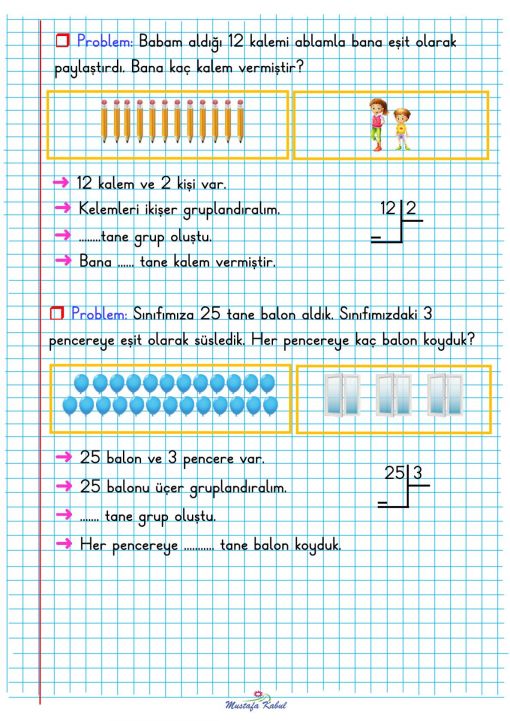 Problem: Babam aldığı 12 kalemi ablamla bana eşit olarak
paylaştırdı. Bana kaç kalem vermiştir?
12 kalem ve 2 kişi var.
Kelemleri ikişer gruplandıralım.
12 2
........tane grup oluştu.
Bana ...... tane kalem vermiştir.
Problem: Sınıfımıza 25 tane balon aldık. Sınıfımızdaki 3
pencereye eşit olarak süsledik. Her pencereye kaç balon koyduk?
25 balon ve 3 pencere var.
25 3
25 balonu üçer gruplandıralım.
....... tane grup oluştu.
Her pencereye ........... tane balon koyduk.
Mustafa Kabul